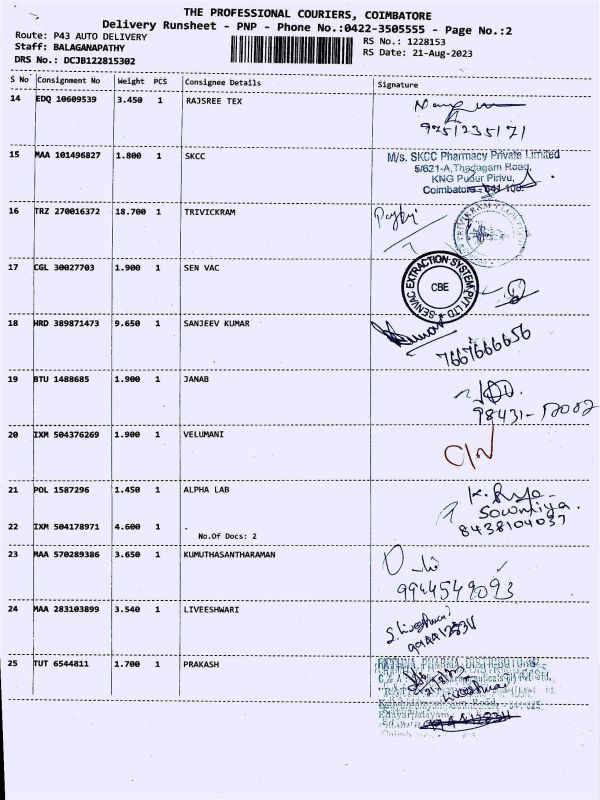 THE PROFESSIONAL COURIERS, COIMBATORE
Delivery Runsheet - PNP - Phone No.:0422-3505555 - Page No.:2
Route: P43 AUTO DELIVERY
Staff: BALAGANAPATHY
DRS No.: DCJB122815302
RS No.: 1228153
RS Date: 21-Aug-2023
S No Consignment No Weight PCS Consignee Details Signature
14 EDQ 10609539 3.450 1 RAJSREE TEX
9751235171
15 MAA 101496827 1.800 1 SKCC
M/s. SKCC Pharmacy Private Limited
5/621-A, Thadagam Road,
KNG Pudur Pirivu,
Coimbatore - 641 108.
16 TRZ 270016372 18.700 1 TRIVICKRAM
17 CGL 30027703 1.900 1 SEN VAC
SENVAC EXTRACTION SYSTEM PVT LTD
CBE
18 HRD 389871473 9.650 1 SANJEEV KUMAR
7667666656
19 BTU 1488685 1.900 1 JANAB
98431-12002
20 IXM 504376269 1.900 1 VELUMANI
C/N
21 POL 1587296 1.450 1 ALPHA LAB
Sowmiya.
8438104037
22 IXM 504178971 4.600 1 .
No.Of Docs: 2
23 MAA 570289386 3.650 1 KUMUTHASANTHARAMAN
9944549093
24 MAA 283103899 3.540 1 LIVEESHWARI
S. Liveeshwari
25 TUT 6544811 1.700 1 PRAKASH
RATHNA PHARMA DISTRIBUTORS
Liveeshwari